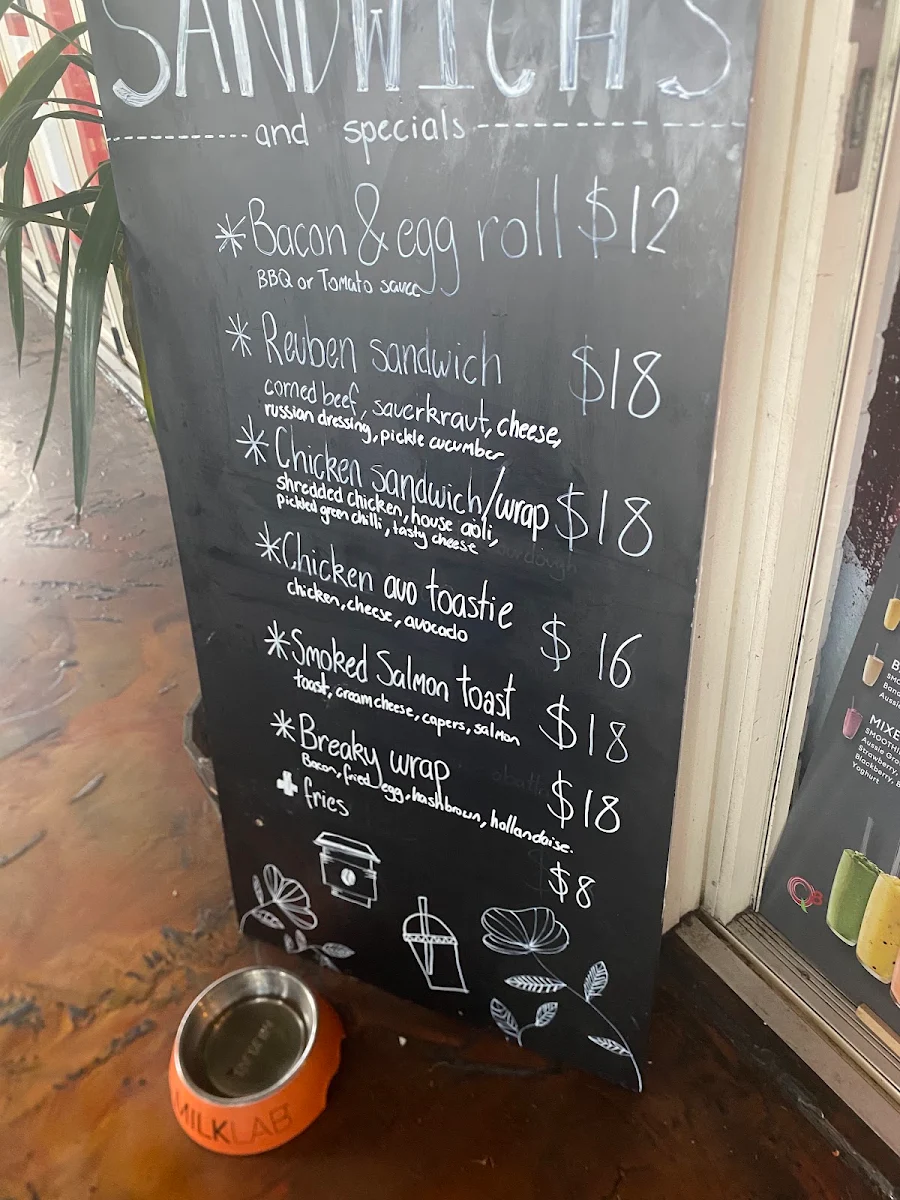 SANDWICH'S
and specials
*Bacon & egg roll $12
BBQ or Tomato sauce
*Reuben sandwich $18
corned beef, sauerkraut, cheese,
russian dressing, pickle cucumber
*Chicken sandwich/wrap $18
shredded chicken, house aoli,
pickled green chilli, tasty cheese
*Chicken avo toastie
chicken, cheese, avocado
$16
*Smoked Salmon toast
toast, cream cheese, capers, salmon
$18
*Breaky wrap
Bacon, fried egg, hashbrown, hollandaise.
$18
+ fries
$8
MILKLAB
MIXE
SMOOTHI
Aussie Gro
Strawberry,
Blackberry, B
Yoghurt